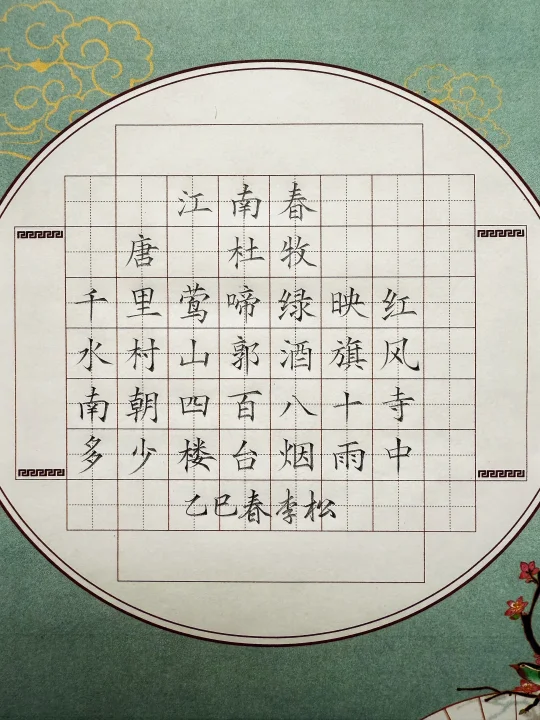 江南春
唐 杜牧
千里莺啼绿映红
水村山郭酒旗风
南朝四百八十寺
多少楼台烟雨中
乙巳春李松